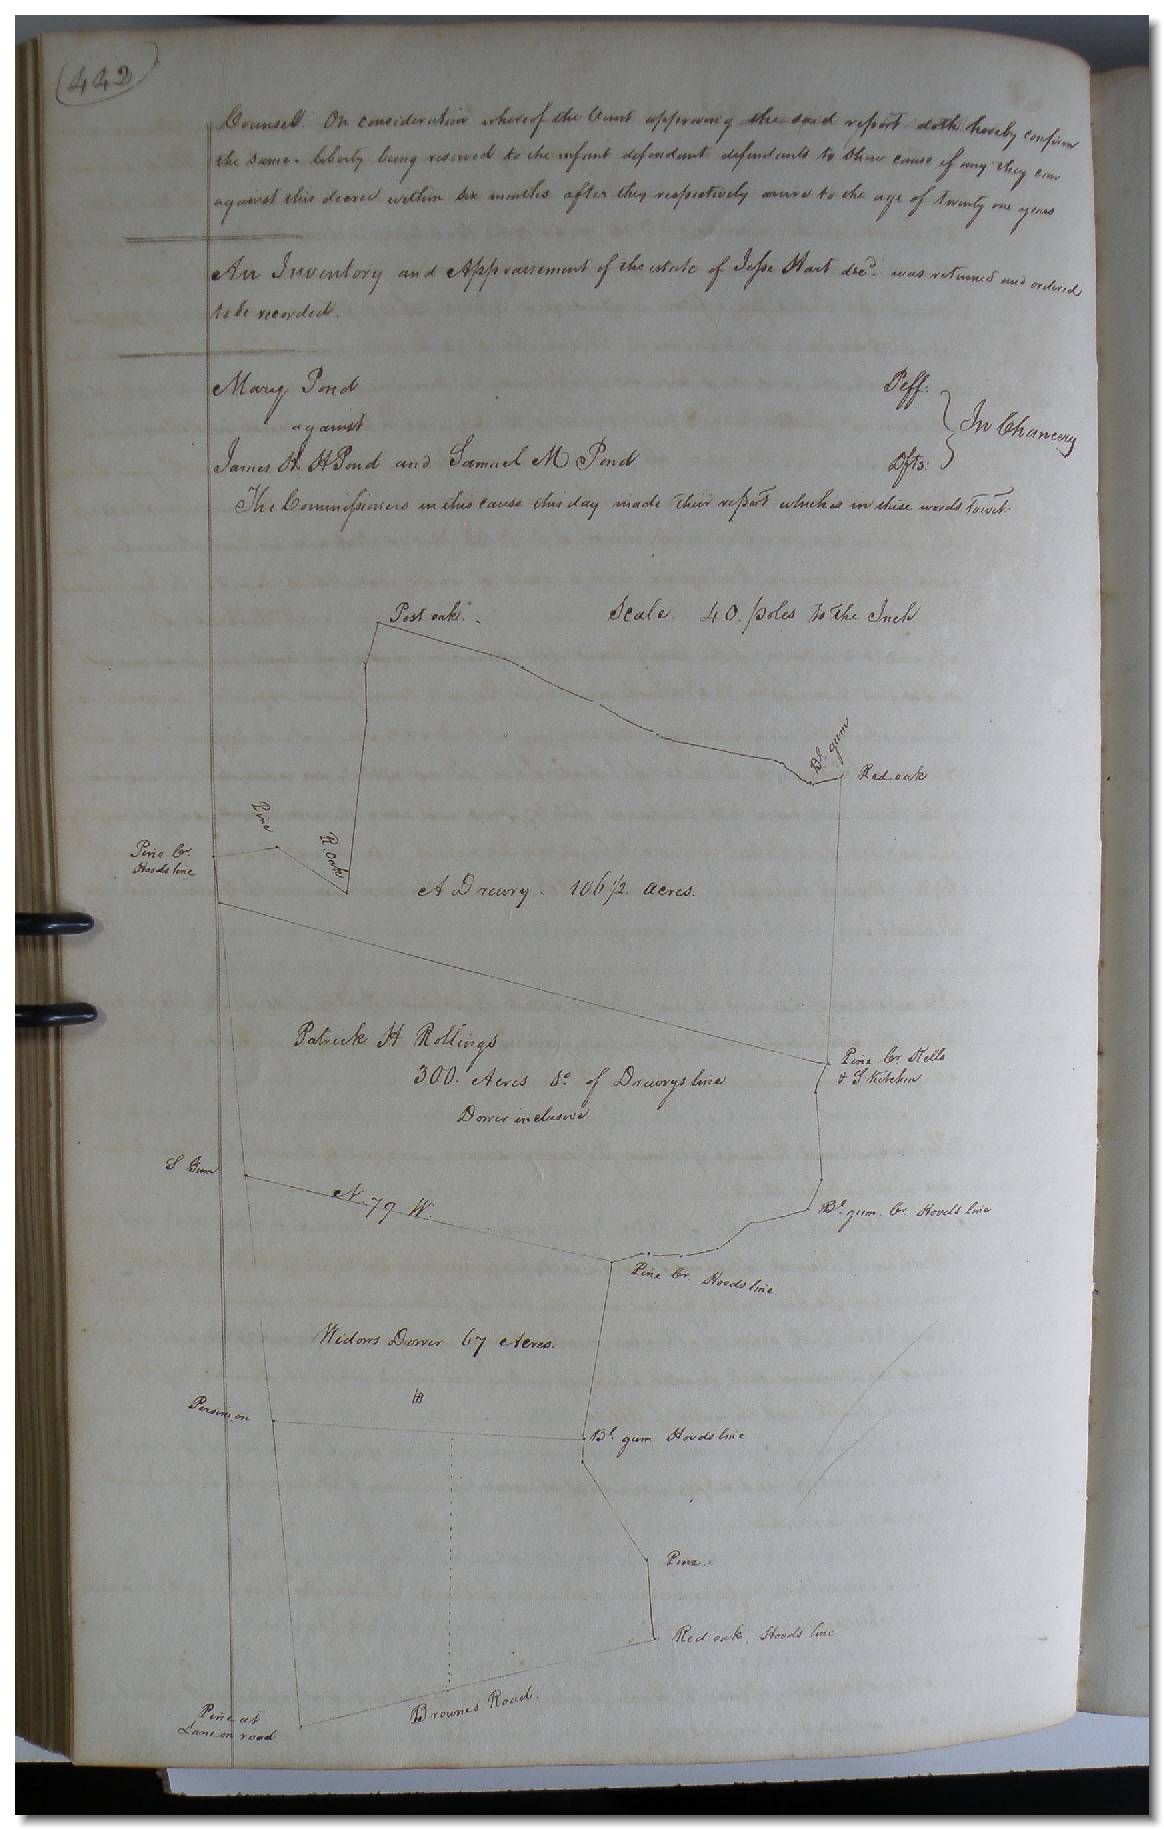 (442)
Counsel. On consideration whereof the Court approving the said report doth hereby confirm
the same. liberty being reserved to the infant defendant defendants to shew cause if any they can
against this decree within six months after they respectively arrive to the age of twenty one years
An Inventory and Appraisement of the estate of Jesse Hart decd. was returned and ordered
to be recorded.
Mary Pond Plff.
against In Chancery
James H. H Pond and Samuel M Pond Dfts:
The Commissioners in this cause this day made their report which is in these words Towit.
Post oak.
Scale. 40. poles to the Inch
Bl. gum
Red oak
Pine
R. oak
Pine Cr.
Hoods line
A Drewry. 106 1/2. acres.
Patrick H Rollings
Pine Cr. Hells
& S Kitchen
300. Acres So. of Drewrys line
Dower inclusive
S Gum
N. 79 W.
Bl. gum. Cr. Hoods line
Pine Cr. Hoods line
Widows Dower 67 Acres.
Persimon
Bl. gum Hoods line
Pine.
Red oak. Hoods line
Brownes Road.
Pine at
Lane on road